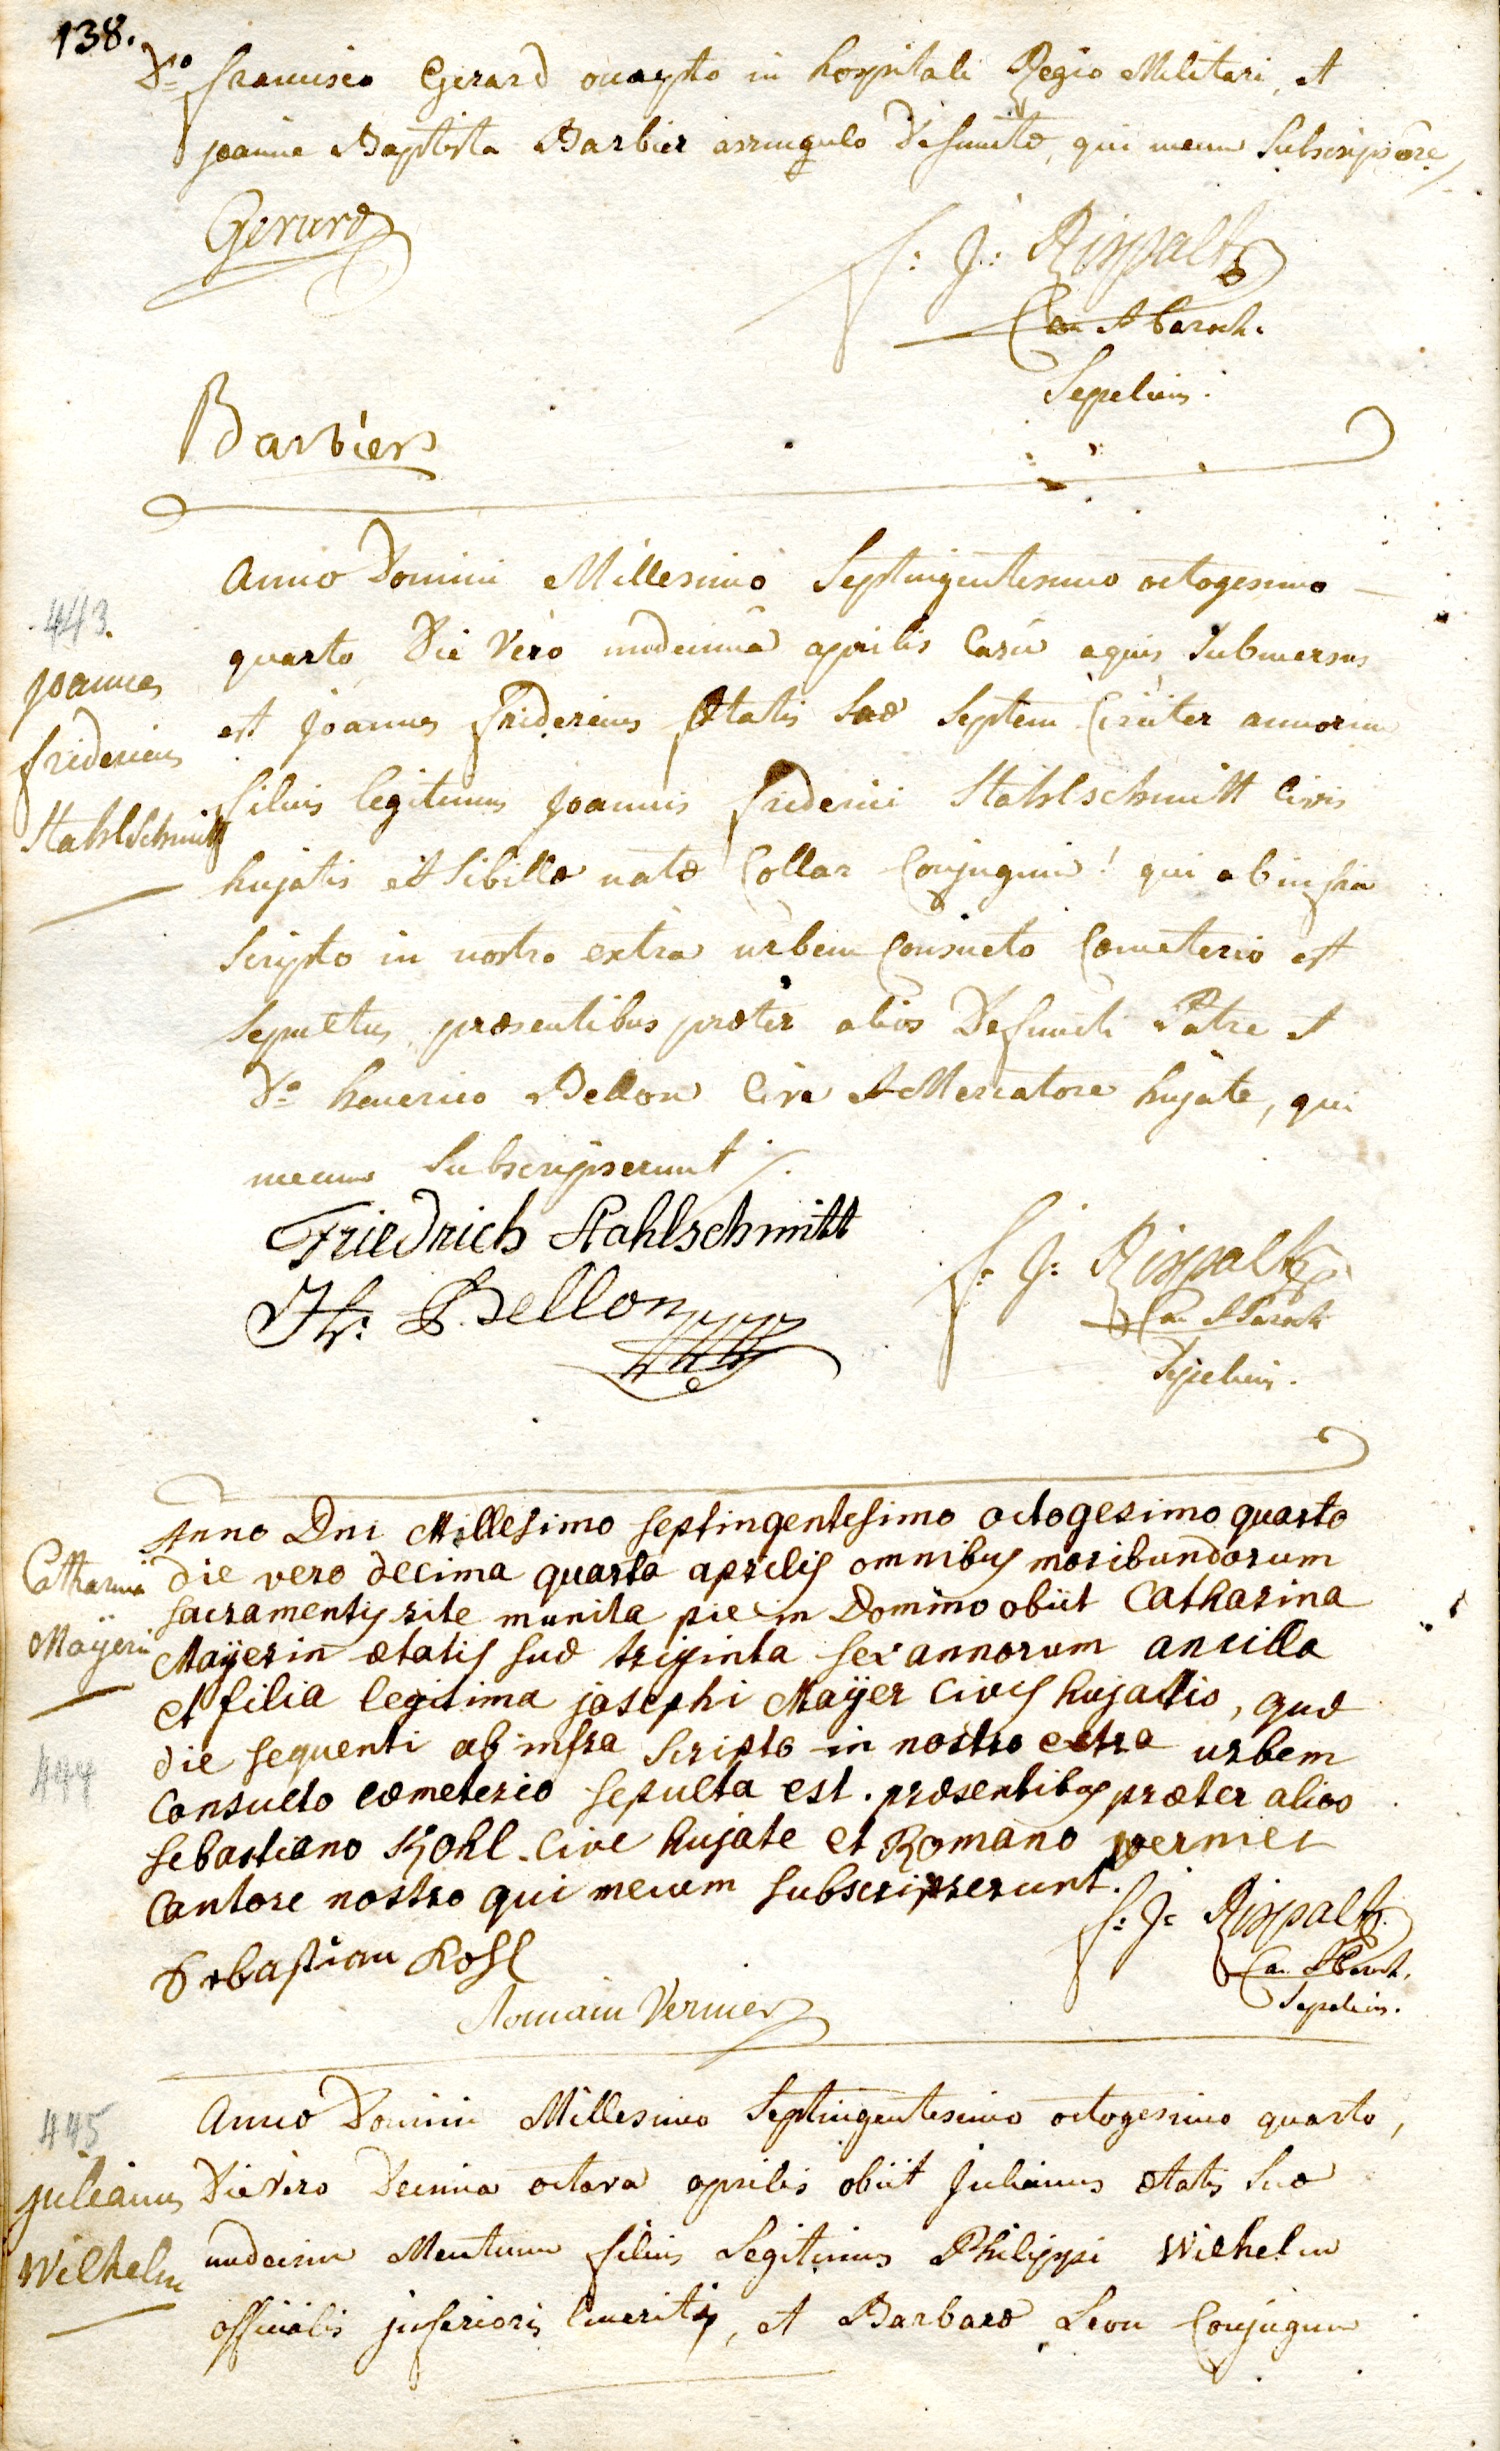 138.
Do Francisco Gerard occupto in hospitali Regio Militari, et
joanne Baptista Barbier defuncto, qui mecum Subscripsere
Gerard
f: J: Rispalt
Can. et Paroch.
Sepeliens.
Barbier
Anno Domini Millesimo Septingentesimo octogesimo
quarto, Die Vero undecima aprilis Casu aquis Submersus
est Joannes Fridericus Ætatis Suæ Septem Circiter annorum
filius legitimus joannis friderici Stahlschmitt Civis
hujatis et Sibillæ natæ Collar Conjugum! qui ab infra
Scripto in nostro extra urbem Consueto Cœmeterio est
Sepultus, præsentibus præter alios Defuncti Patre et
Do henrico Bellon Cive et Mercatore hujate, qui
mecum Subscripserunt /.
443.
joannes
fridericus
Stahlschmitt
Friedrich Stahlschmitt
Hr: Bellon
f: J: Rispalt
Can. et Paroch
Sepeliens.
Anno Dni Millesimo septingentesimo octogesimo quarto
die vero decima quarta aprilis omnibus moribundorum
sacramentis rite munita pie in Domino obiit Catharina
Maÿerin ætatis suæ triginta sex annorum ancilla
et filia legitima josephi Maÿer Civis hujatis, quæ
die sequenti ab infra scripto in nostro extra urbem
Consueto cœmeterio sepulta est. præsentibus præter alios
sebastiano Kohl cive hujate et Romano vernier
Cantore nostro qui mecum subscripserunt.
Catharina
Maÿerin
444
Sebastian Kohl
Romain Vernier
f: J: Rispalt
Can. et Paroch.
Sepeliens.
Anno Domini Millesimo Septingentesimo octogesimo quarto,
Die Vero Decima octava aprilis obiit Julianus ætatis Suæ
undecim Mensium filius Legitimus Philippi Wilhelm
officialis inferioris emeriti, et Barbaræ Leon Conjugum
445
julianus
Wilhelm